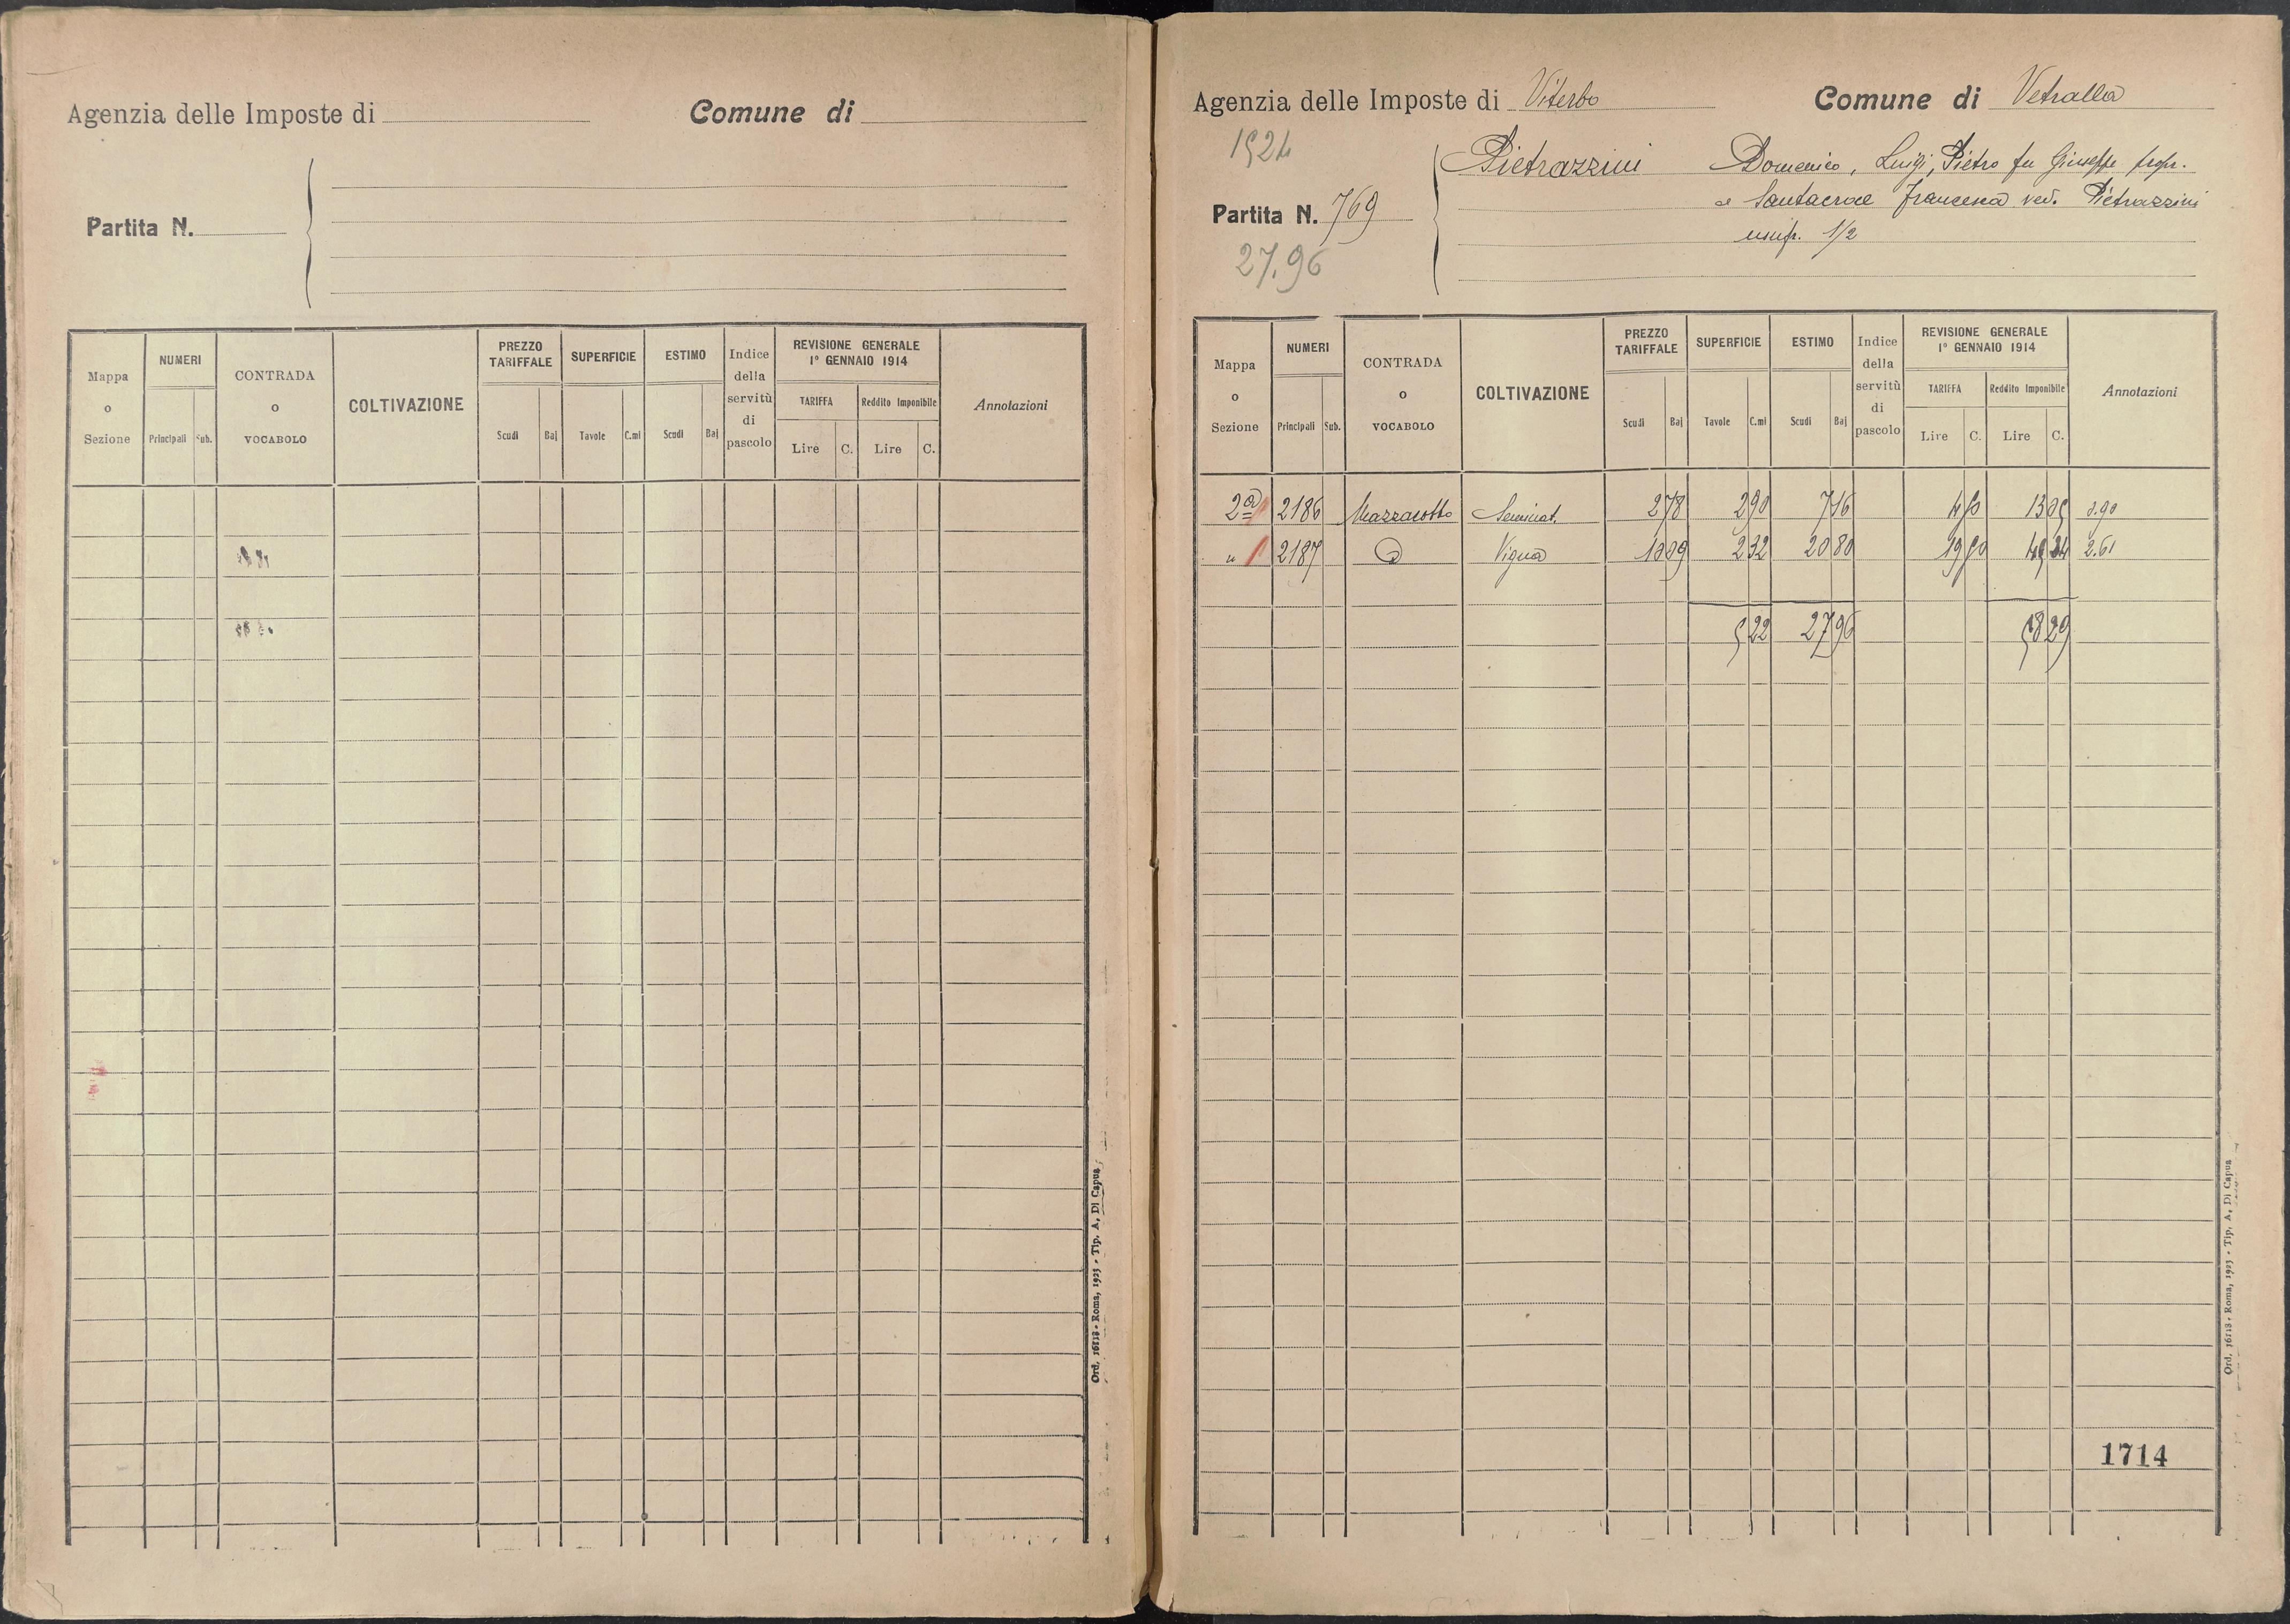 Agenzia delle Imposte di
Comune di
Partita N.
Mappa o Sezione
NUMERI
Principali
Sub.
CONTRADA o VOCABOLO
COLTIVAZIONE
PREZZO TARIFFALE
Scudi
Baj
SUPERFICIE
Tavole
C.mi
ESTIMO
Scudi
Baj
Indice della servitù di pascolo
REVISIONE GENERALE
1° GENNAIO 1914
TARIFFA
Lire
C.
Reddito Imponibile
Lire
C.
Annotazioni
Ord. 16118 - Roma, 1925 - Tip. A. Di Capua
Agenzia delle Imposte di Viterbo
Comune di Vetralla
1924
Pietrazzini Domenico, Luigi, Pietro fu Giuseppe propr.
Partita N. 769
e Santacroce Francesca ved. Pietrazzini
usufr. 1/2
27.96
Mappa o Sezione
NUMERI
Principali
Sub.
CONTRADA o VOCABOLO
COLTIVAZIONE
PREZZO TARIFFALE
Scudi
Baj
SUPERFICIE
Tavole
C.mi
ESTIMO
Scudi
Baj
Indice della servitù di pascolo
REVISIONE GENERALE
1° GENNAIO 1914
TARIFFA
Lire
C.
Reddito Imponibile
Lire
C.
Annotazioni
2a 2186 Mazzacotto Seminat. 2 78 2 90 7 16 4 50 13 05
" 2187 Vigna 2 32 20 80 19 50 2.61
5 22 27 96 58 29
1714
Ord. 16118 - Roma, 1925 - Tip. A. Di Capua